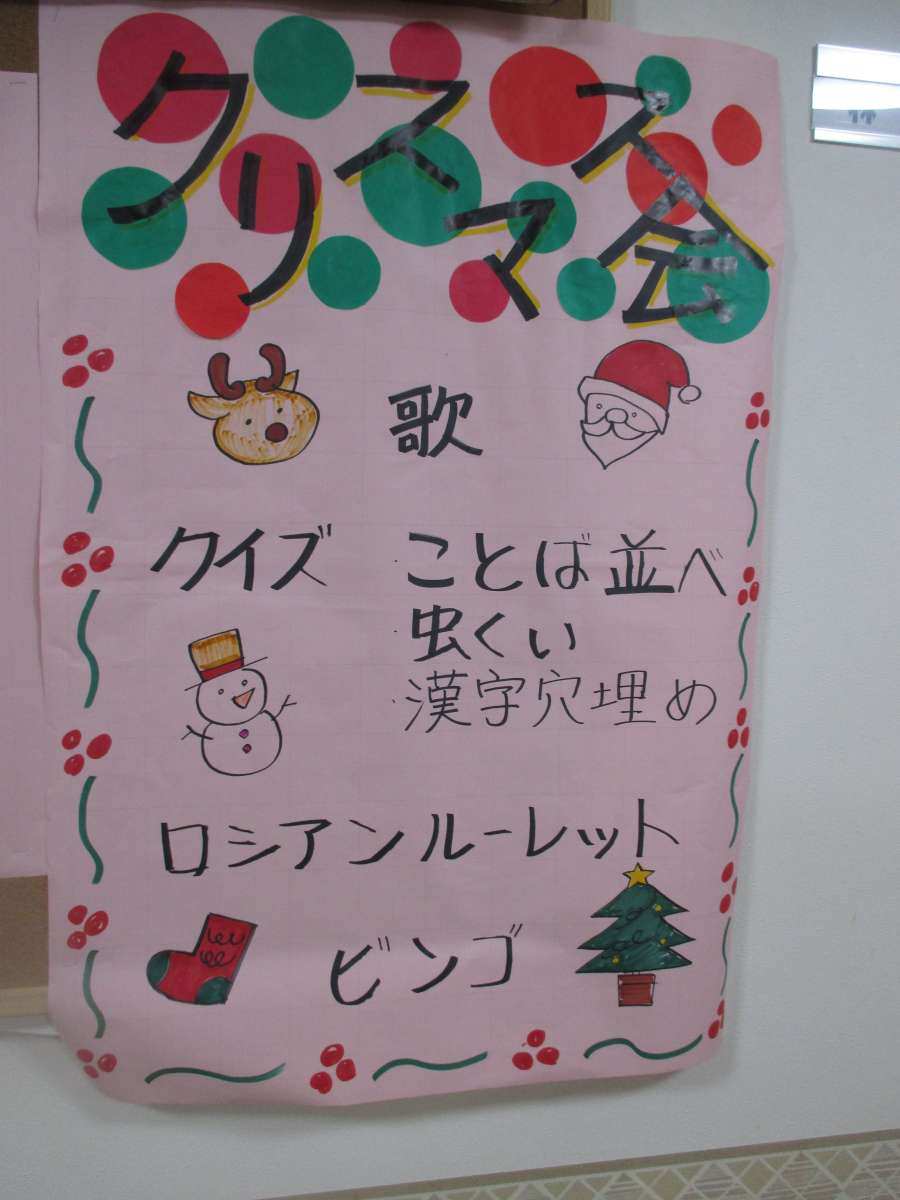 クリスマス会
歌
クイズ ・ことば並べ
・虫くい
・漢字穴埋め
ロシアンルーレット
ビンゴ